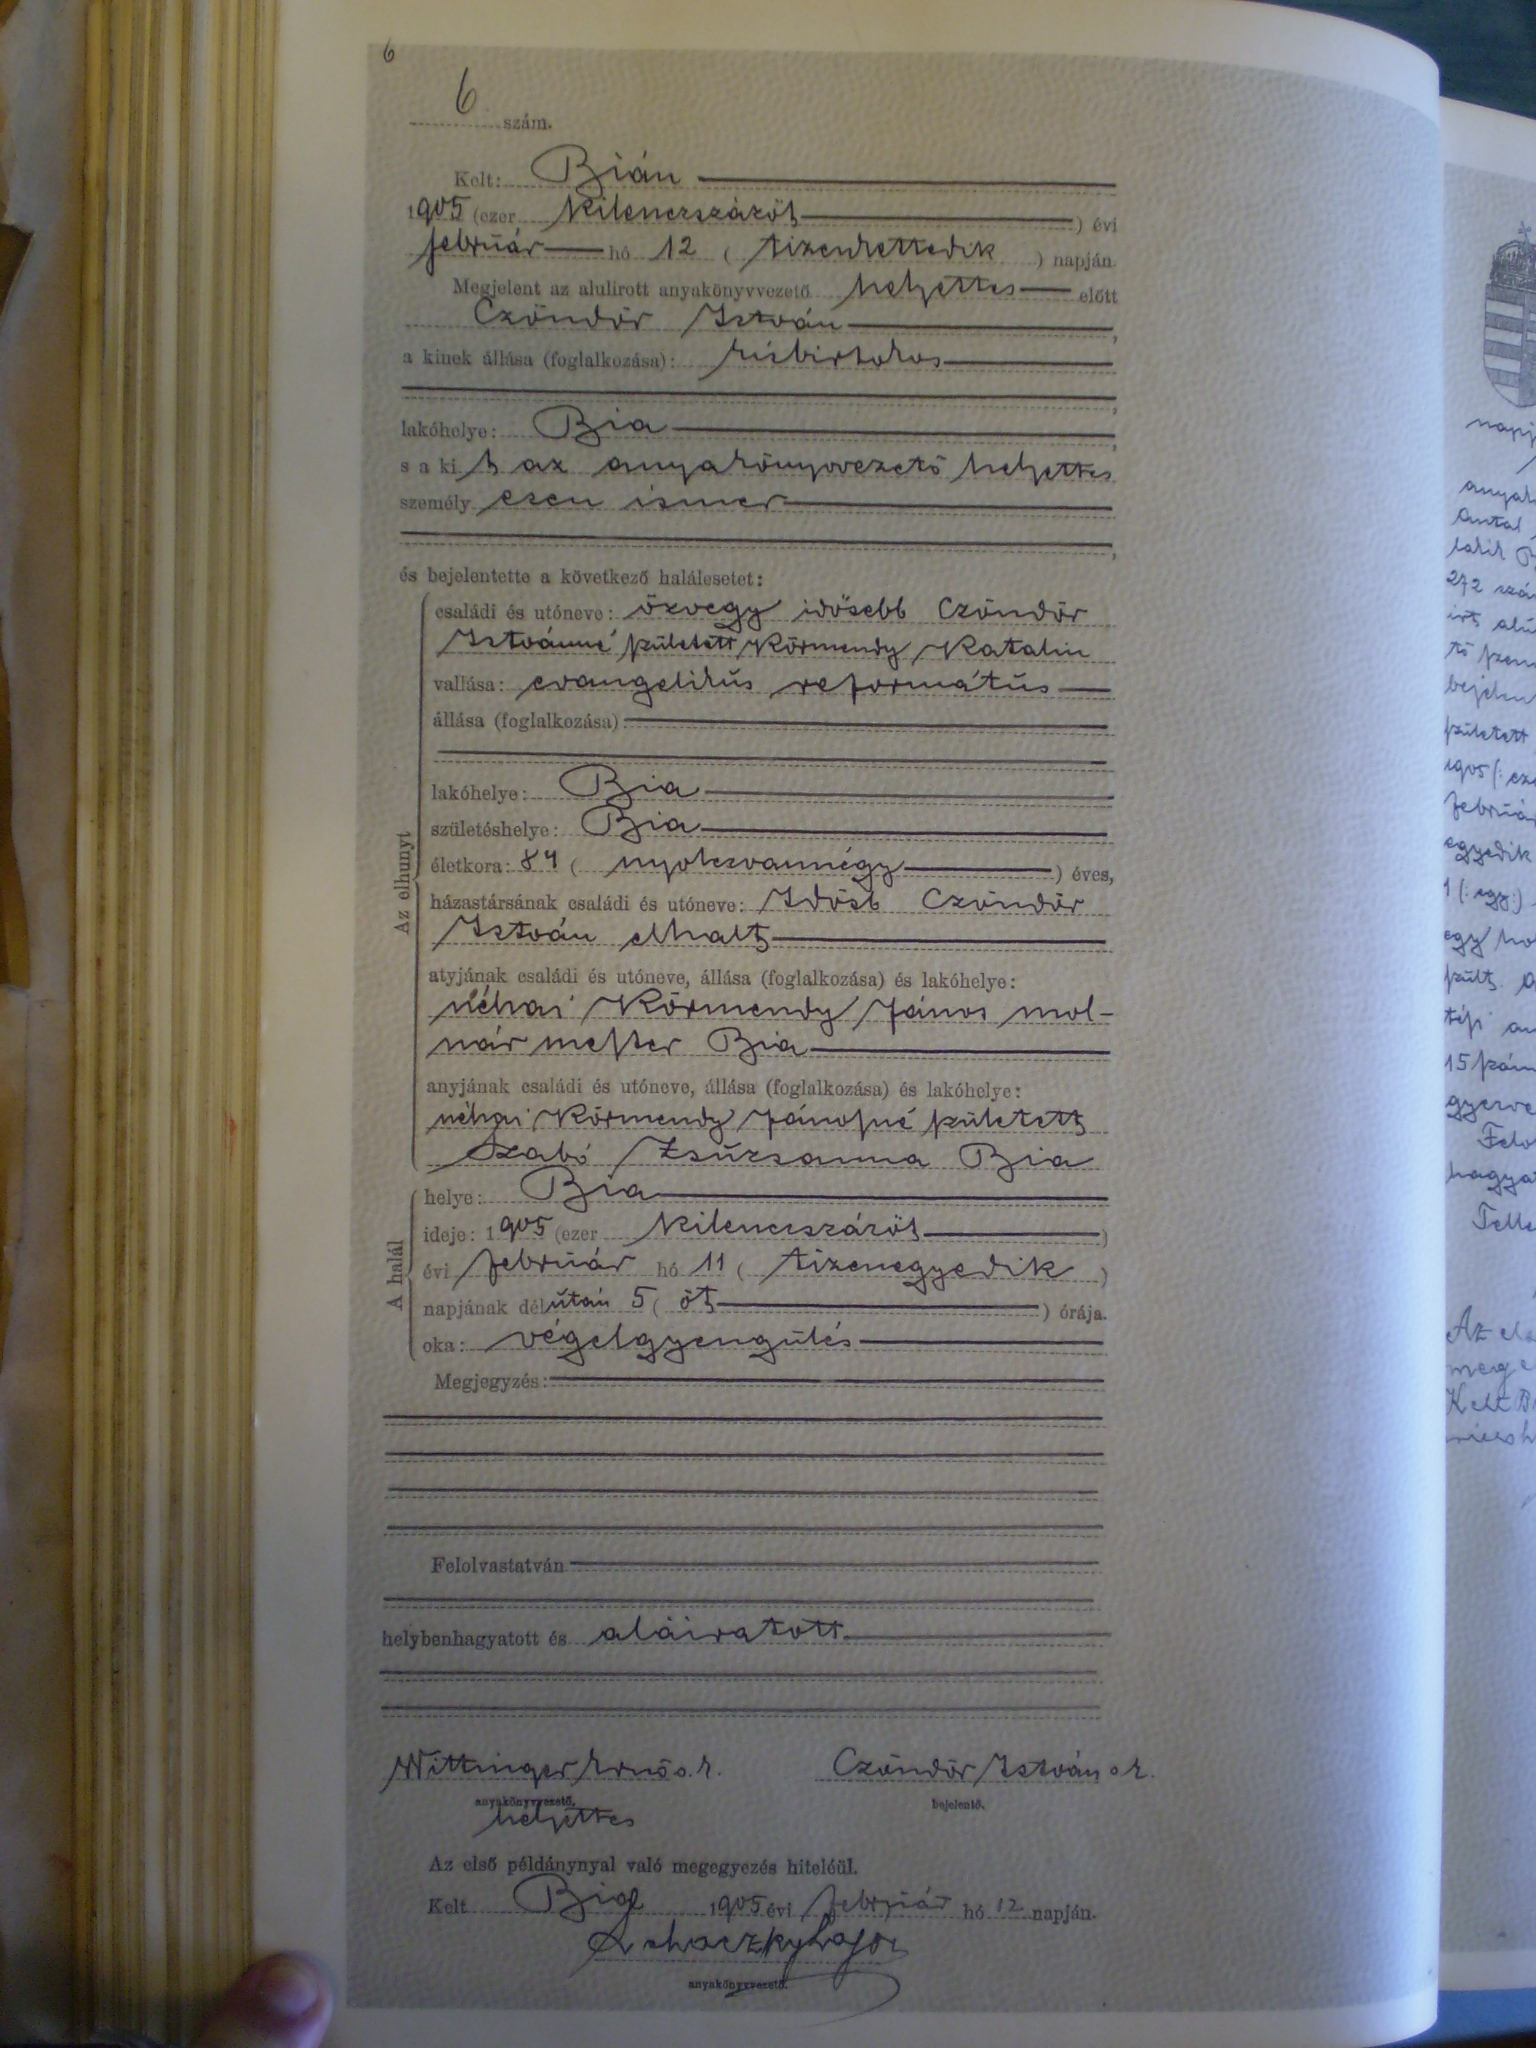 6
6 szám.
Kelt: Bián
1905 (ezer kilenczszázöt ) évi
február hó 12 ( tizenkettedik ) napján.
Megjelent az alulírott anyakönyvvezető helyettes előtt
Czöndör István,
a kinek állása (foglalkozása): kisbirtokos
,
lakóhelye: Bia,
s a ki t az anyakönyvvezető helyettes
személyesen ismer
,
és bejelentette a következő halálesetet:
Az elhunyt
családi és utóneve: özvegy idősebb Czöndör
Istvánné született Körmendy Katalin
vallása: evangelikus református
állása (foglalkozása)
lakóhelye: Bia
születéshelye: Bia
életkora: 84 ( nyolczvannégy ) éves,
házastársának családi és utóneve: Idősb Czöndör
István elhalt
atyjának családi és utóneve, állása (foglalkozása) és lakóhelye:
néhai Körmendy János mol-
nár mester Bia
anyjának családi és utóneve, állása (foglalkozása) és lakóhelye:
néhai Körmendy Jánosné született
Szabó Zsuzsanna Bia
A halál
helye: Bia
ideje: 1905 (ezer kilenczszázöt )
évi február hó 11 ( tizenegyedik )
napjának délután 5 ( öt ) órája.
oka: végelgyengülés
Megjegyzés:
Felolvastatván
helybenhagyatott és aláiratott
Wittinger Ernő s. k. Czöndör István s k.
anyakönyvvezető, bejelentő.
helyettes
Az első példánynyal való megegyezés hiteléül.
Kelt Bia 1905 évi február hó 12 napján.
Lajos
anyakönyvvezető.
napj
Antal
272 szá
született
1905 (: eze
február
egyedik
1 (: egy :)
egy
Az el
meg e